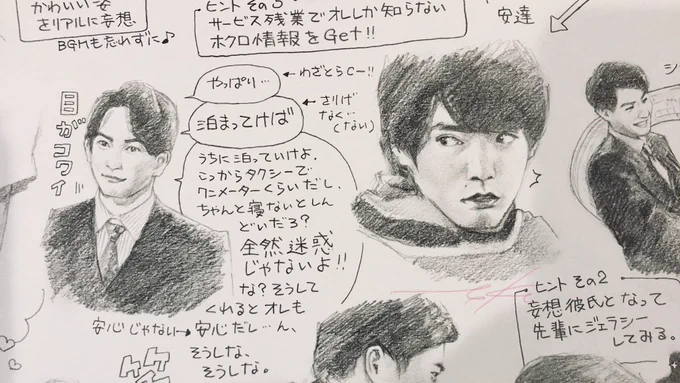 かわいい安
をリアルに妄想
BGMも忘れずに♪
ヒント その3
サービス残業でオレしか知らない
ホクロ情報をGet!!
安達
やっぱり…
←わざとらC−!!
泊まってけば
←さりげ
なく…
(ない)
目がコワイ
うちに泊っていけよ.
こっからタクシーで
ワニメーターくらいだし、
ちゃんと寝ないとしん
どいだろ?
全然迷惑
じゃないよ!!
な?そうして
くれるとオレも
安心じゃない→安心だし…ん、
そうしな、
そうしな。
シ
ヒント その2
妄想彼氏となって
先輩にジェラシー
してみる。